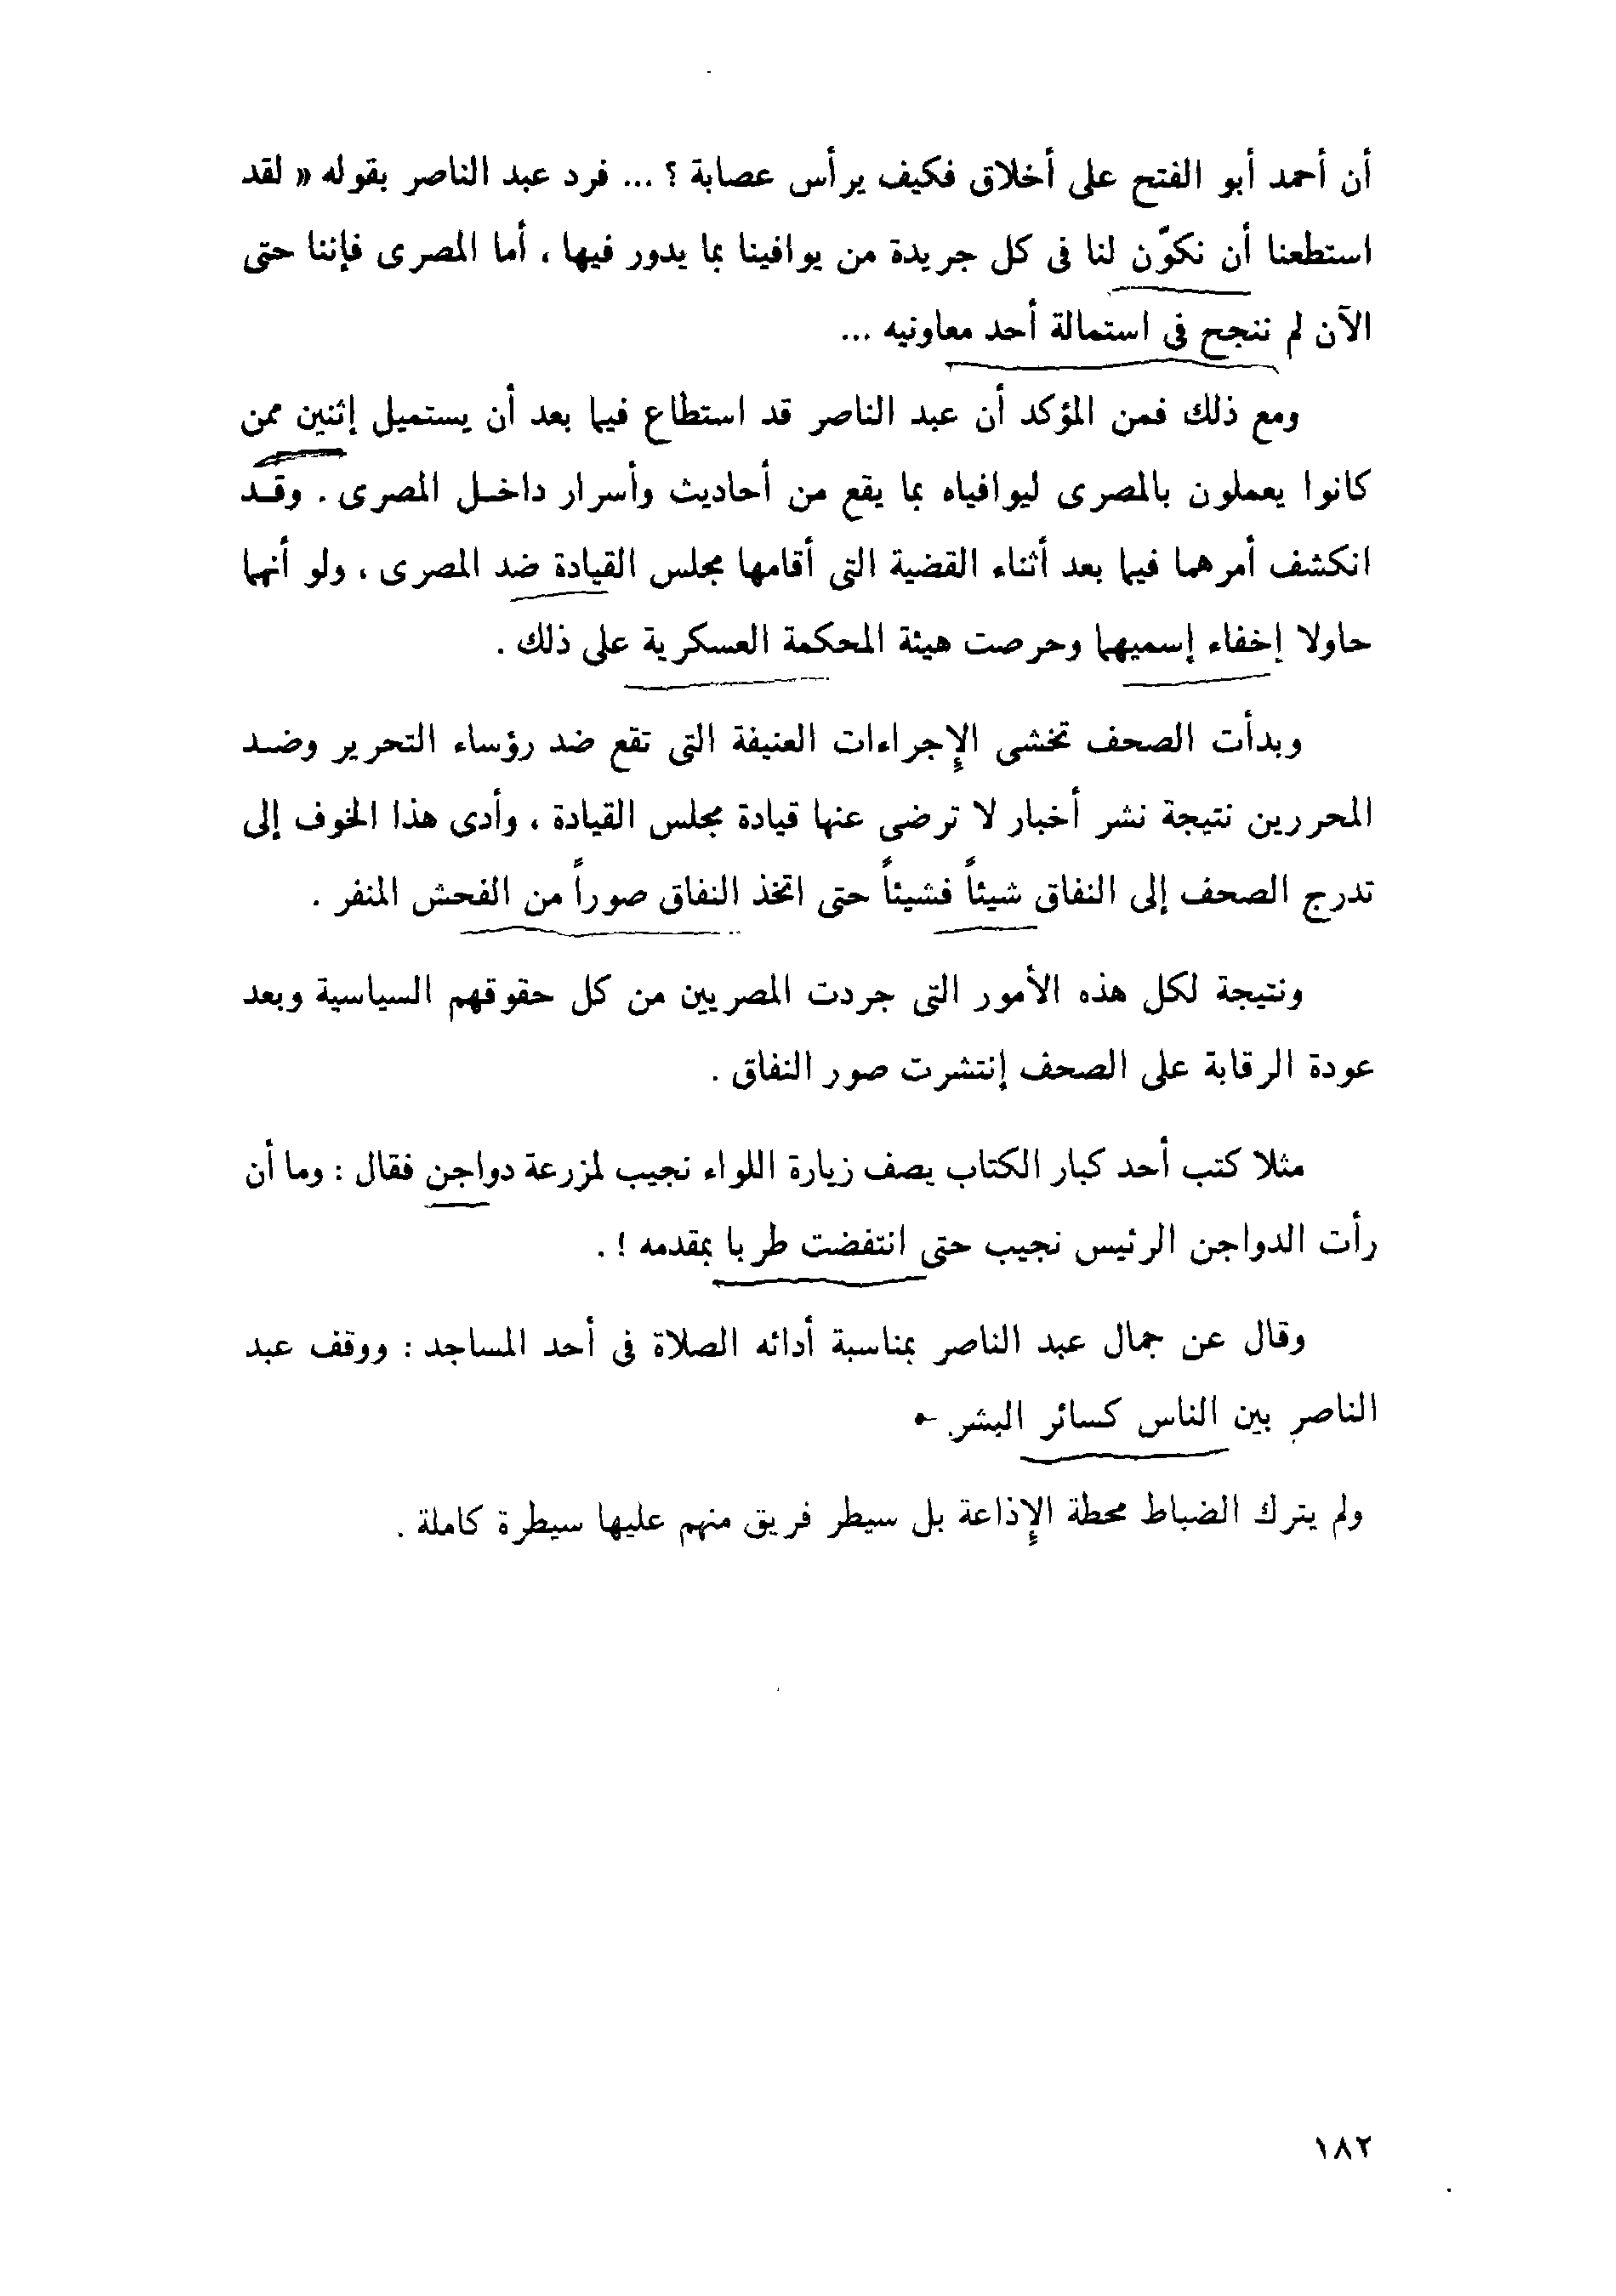 أن أحمد أبو الفتح على أخلاق فكيف يرأس عصابة ؟ ... فرد عبد الناصر بقوله « لقد
استطعنا أن نكوّن لنا فى كل جريدة من يوافينا بما يدور فيها ، أما المصرى فإننا حتى
الآن لم ننجح فى استمالة أحد معاونيه ...
ومع ذلك فمن المؤكد أن عبد الناصر قد استطاع فيما بعد أن يستميل إثنين ممن
كانوا يعملون بالمصرى ليوافياه بما يقع من أحاديث وأسرار داخـل المصرى . وقـد
انكشف أمرهما فيما بعد أثناء القضية التى أقامها مجلس القيادة ضد المصرى ، ولو أنهما
حاولا إخفاء إسميهما وحرصت هيئة المحكمة العسكرية على ذلك .
وبدأت الصحف تخشى الإجراءات العنيفة التى تقع ضد رؤساء التحرير وضـد
المحررين نتيجة نشر أخبار لا ترضى عنها قيادة مجلس القيادة ، وأدى هذا الخوف إلى
تدرج الصحف إلى النفاق شيئاً فشيئاً حتى اتخذ النفاق صوراً من الفحش المنفر .
ونتيجة لكل هذه الأمور التى جردت المصريين من كل حقوقهم السياسية وبعد
عودة الرقابة على الصحف إنتشرت صور النفاق .
مثلا كتب أحد كبار الكتاب يصف زيارة اللواء نجيب لمزرعة دواجن فقال : وما أن
رأت الدواجن الرئيس نجيب حتى انتفضت طربا بمقدمه ! .
وقال عن جمال عبد الناصر بمناسبة أدائه الصلاة فى أحد المساجد : ووقف عبد
الناصر بين الناس كسائر البشر .
ولم يترك الضباط محطة الإذاعة بل سيطر فريق منهم عليها سيطرة كاملة .
١٨٢